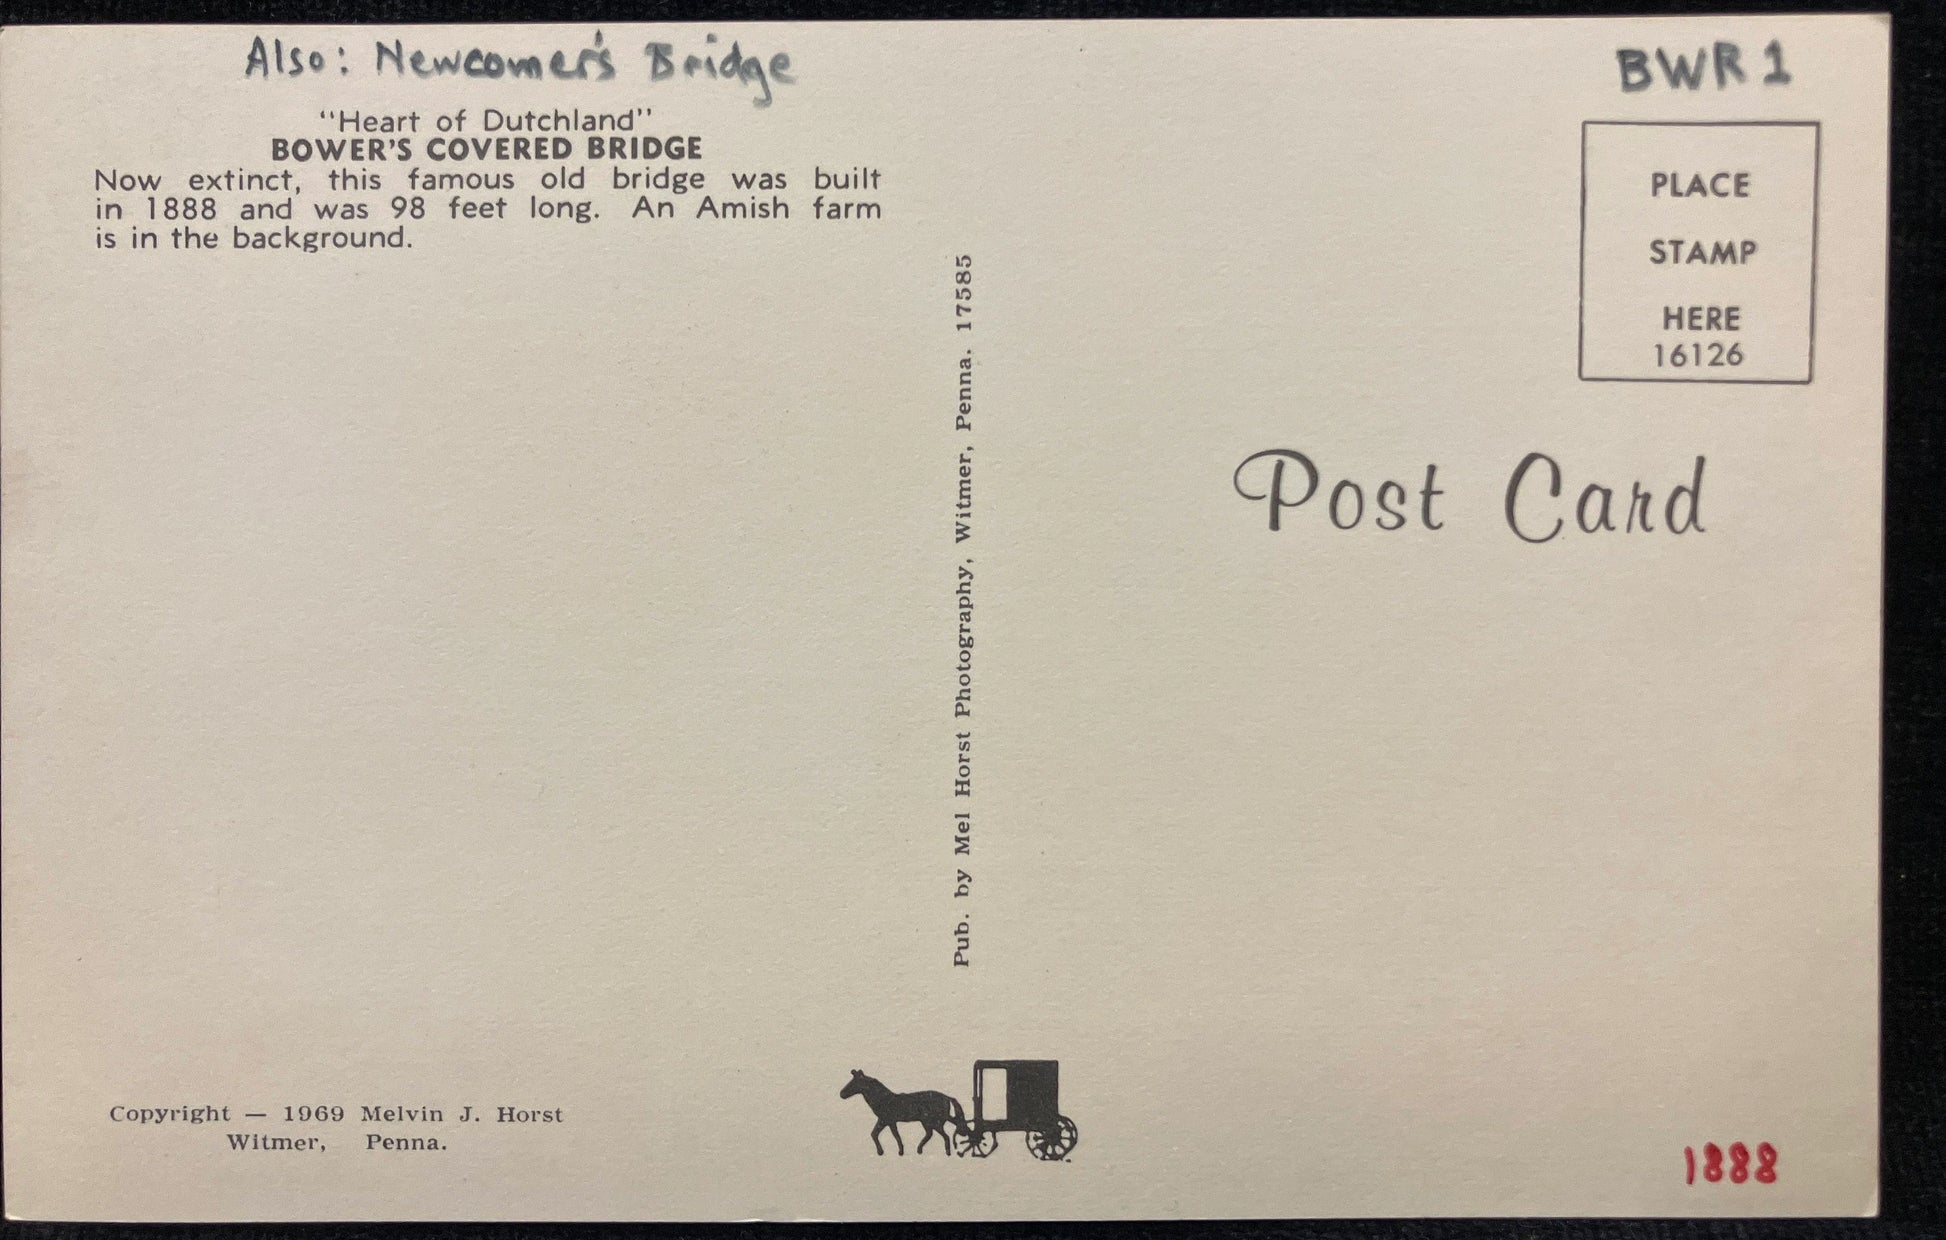 Also: Newcomer's Bridge
BWR 1
"Heart of Dutchland"
BOWER'S COVERED BRIDGE
Now extinct, this famous old bridge was built
in 1888 and was 98 feet long. An Amish farm
is in the background.
PLACE
STAMP
HERE
16126
Post Card
Pub. by Mel Horst Photography, Witmer, Penna. 17585
Copyright — 1969 Melvin J. Horst
Witmer, Penna.
1888